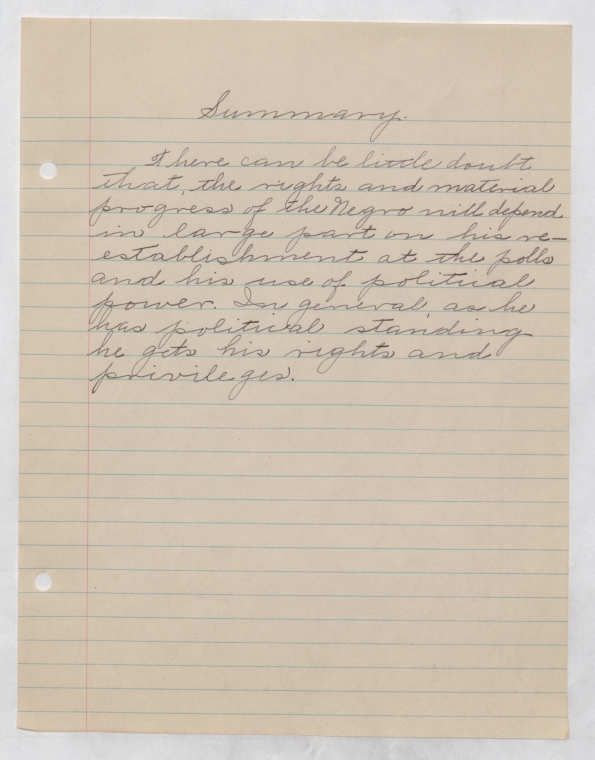 Summary.
There can be little doubt
that, the rights and material
progress of the Negro will depend
in large part on his re-
establishment at the polls
and his use of political
power. In general, as he
has political standing
he gets his rights and
privileges.